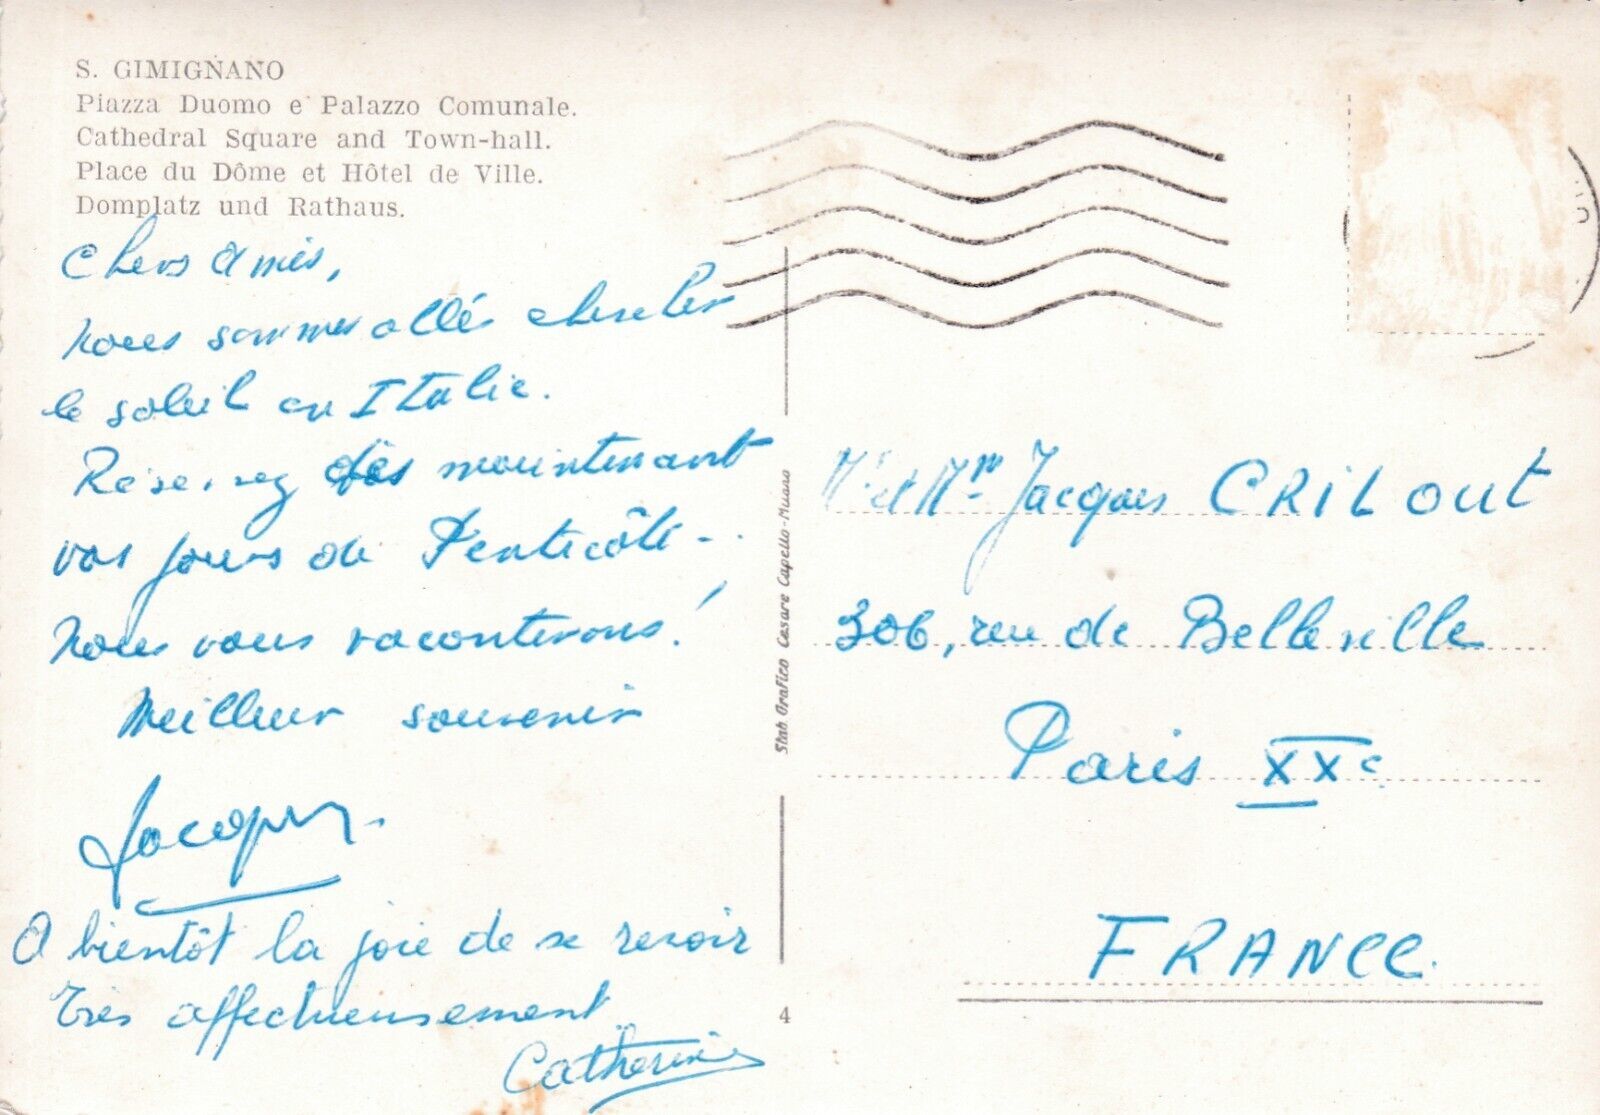 S. GIMIGNANO
Piazza Duomo e Palazzo Comunale.
Cathedral Square and Town-hall.
Place du Dôme et Hôtel de Ville.
Domplatz und Rathaus.
Chers Amis,
nous sommes allés chercher
le soleil en Italie.
Réservez dès maintenant
vos jours de Pentecôte...
Nous vous raconterons!
Meilleur souvenir
Jacques
A bientôt la joie de se revoir
Très affectueusement
Catherine
Stab. Grafico Cesare Capello-Milano
4
Mr et Mme Jacques CRILOUT
306, rue de Belleville
Paris XXe
FRANCE.